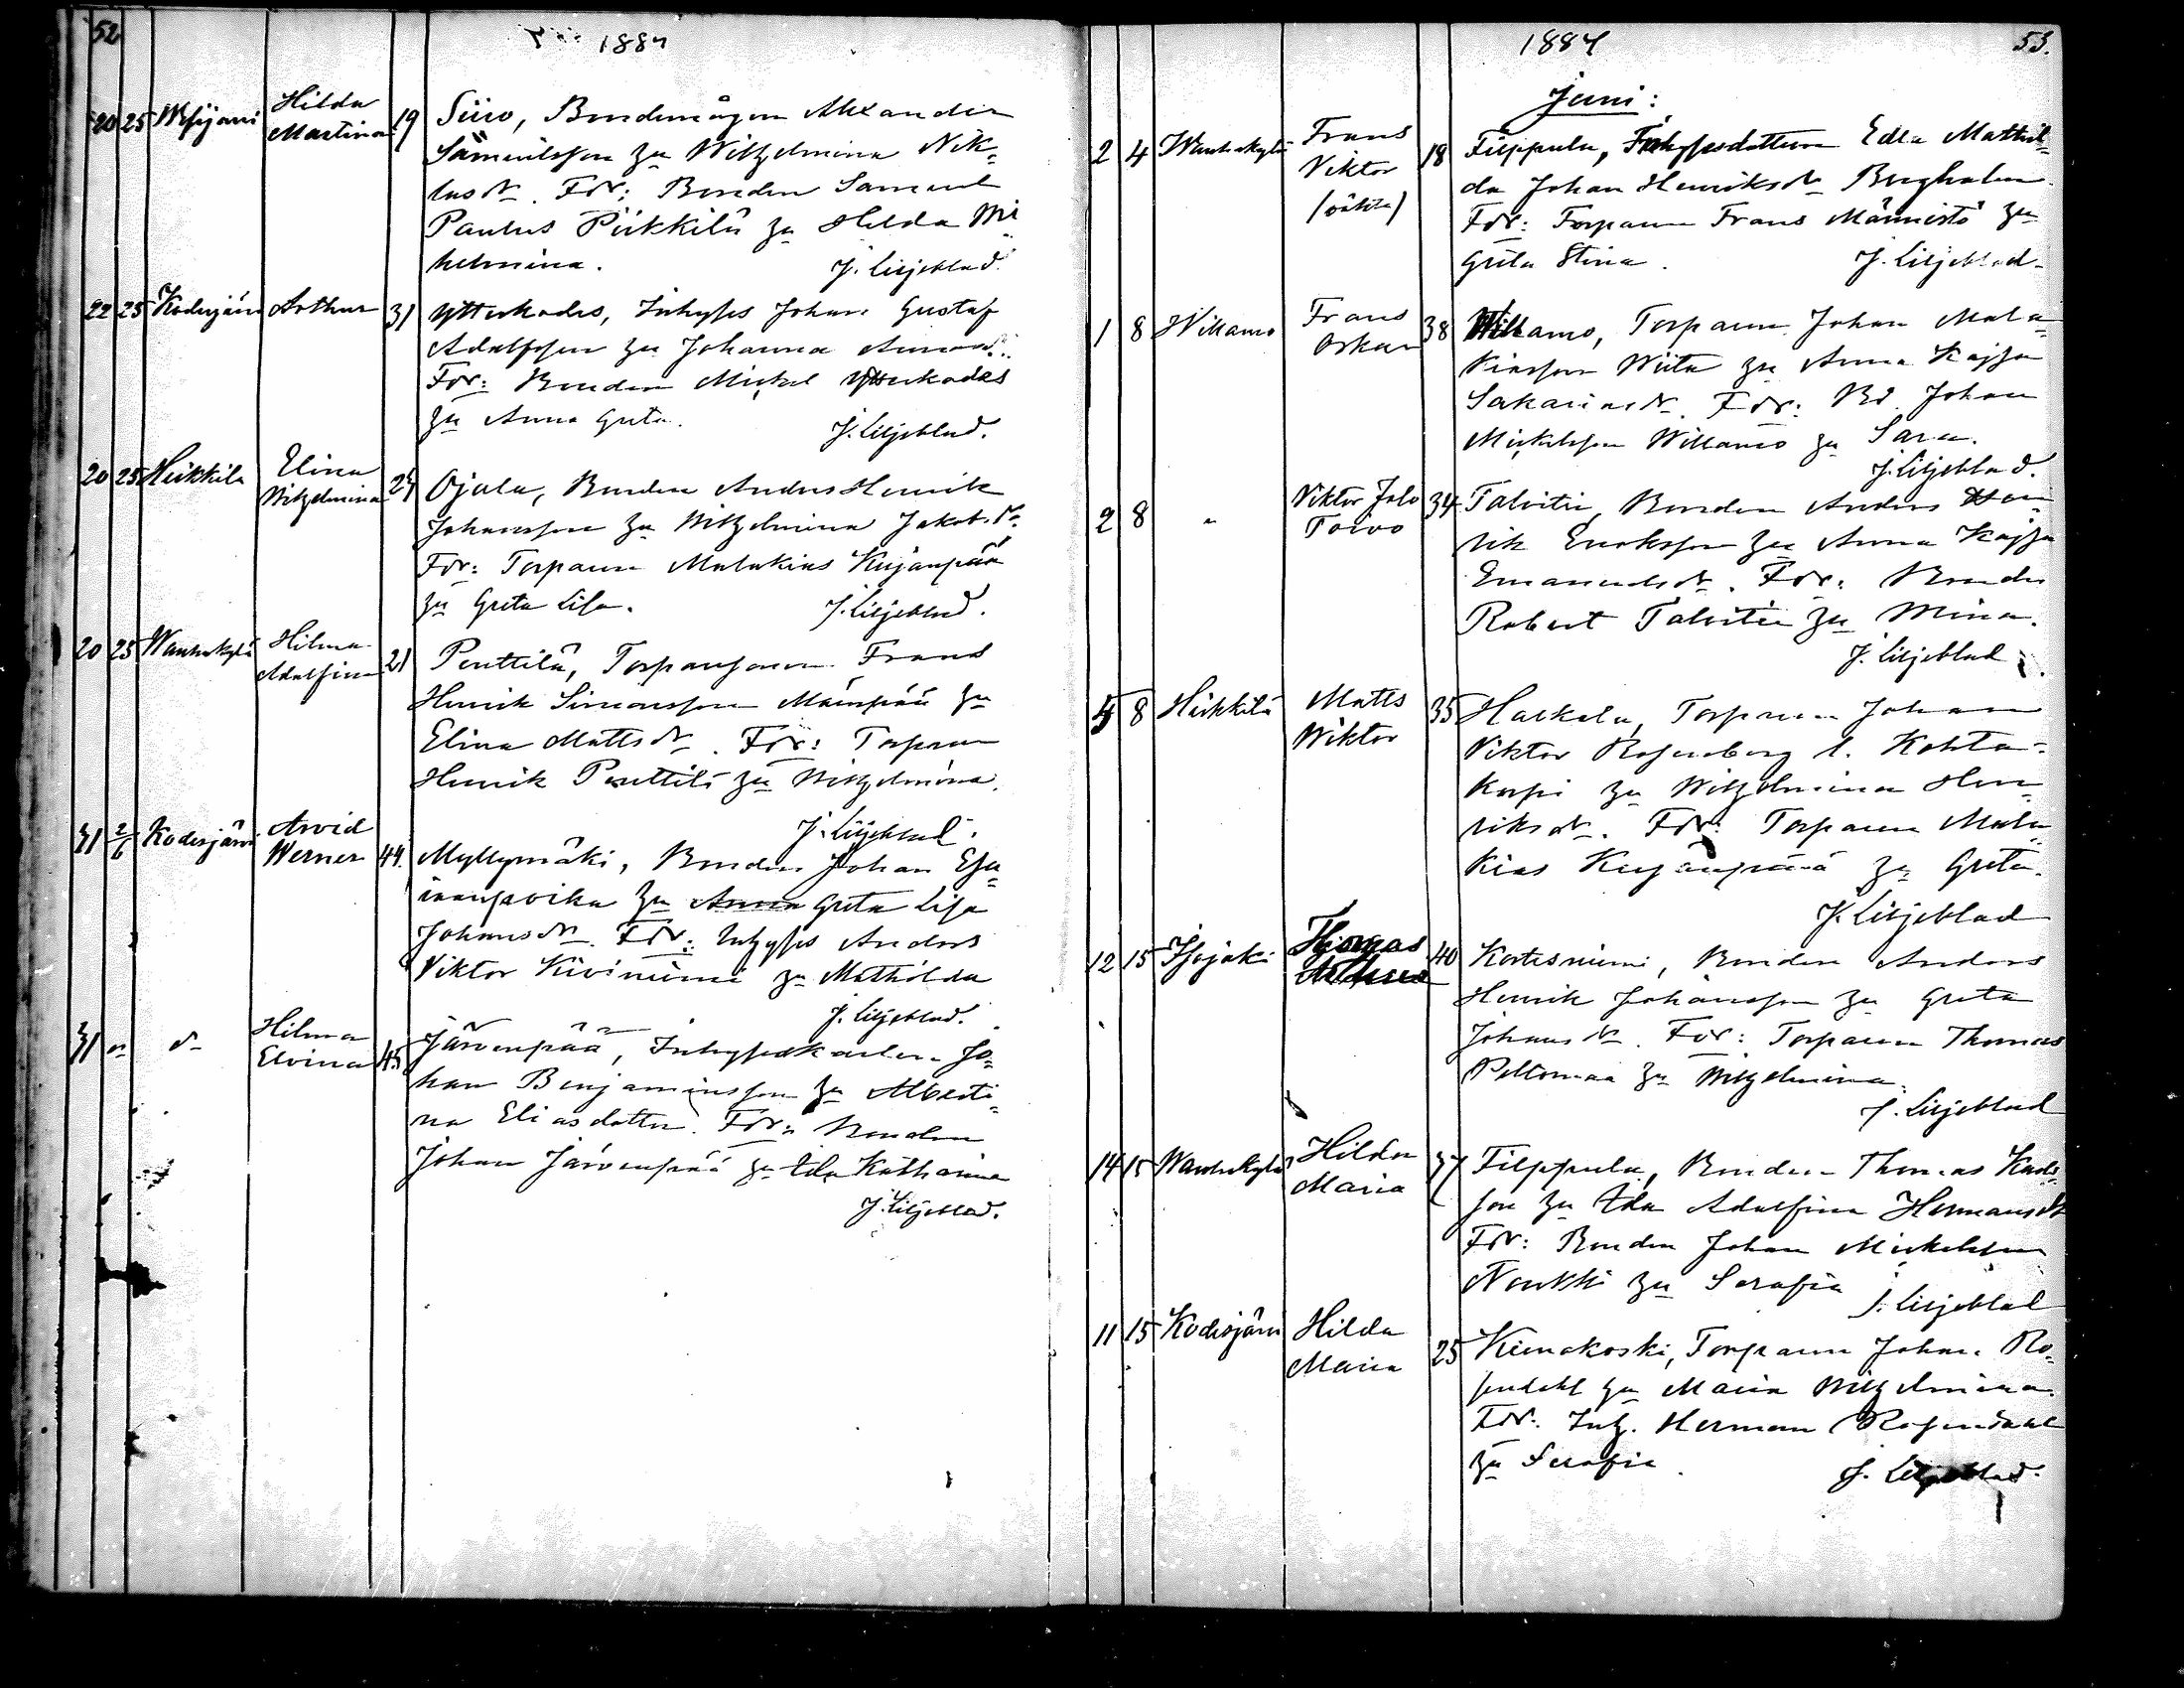 52
1884
20 25 Wesijärvi Hilda Martina 19 Siiro, Bondemågen Alexander
Samuelsson zu Wilhelmina Nik-
lasdr. Fdr: Bonden Samuel
Paulus Piikkilä zu Hilda Wil-
helmina. J. Liljeblad.
22 25 Kodesjärvi Arthur 31 Ytterkodes, Inhyses Johan Gustaf
Adolfsson zu Johanna
Fdr: Bonden Mickel Ytterkodes
zu Anna Greta. J. Liljeblad.
20 25 Heikkilä Elina Wilhelmina 24 Ojala, Bonden Anders Henrik
Johansson zu Wilhelmina Jakobsdr.
Fdr: Torparen Malakias Kujanpää
zu Greta Lisa. J. Liljeblad.
20 25 Wanhakylä Hilma Adolfina 21 Penttilä, Torparsonen Frans
Henrik Simonsson Mäenpää zu
Elina Mattsdr. Fdr: Torparen
Henrik Penttilä zu Wilhelmina.
J. Liljeblad.
31 2/6 Kodesjärvi Arvid Werner 44. Myllymäki, Bonden Johan Esa-
zu Anna Greta Lisa
Johansdr. Fdr: Inhyses Anders
Viktor Kiviniemi zu Mathilda
J. Liljeblad.
31 Hilma Elvina 45 Järvenpää, Inhyseskarlen Jo-
han Benjaminsson zu Alberti-
na Eliasdotter. Fdr: Bonden
Johan Järvenpää zu Ida Katharina
J. Liljeblad.
1884 53.
Juni:
2 4 Wanhakylä Frans Viktor (oäkta) 18 Filppula, Inhysesdottern Edla Mathil-
da Johan Henriksdr Bergholm.
Fdr: Torparen Frans Männistö zu
Greta Stina. J. Liljeblad.
1 8 Willamo Frans Oskar 38 Willamo, Torparen Johan Mala-
kiasson Wiita zu Anna Kajsa
Sakariasdr. Fdr: Bd. Johan
Mickelsson Willamo zu Sara.
J. Liljeblad.
2 8 " Viktor Jalo Toivo 34 Talvitie, Bonden Anders Hen-
rik Eneksson zu Anna Kajsa
Emanuelsdr. Fdr: Bonden
Robert Talvitie zu Mina.
J. Liljeblad
5 8 Heikkilä Matts Wiktor 35 Harkala, Torparen Johan
Viktor Rosenberg l. Kohta-
korpi zu Wilhelmina Hen-
riksdr. Fdr: Torparen Mala-
kias Kujanpää zu Greta.
J. Liljeblad
12 15 Isojoki 40 Kortesniemi, Bonden Anders
Henrik Johansson zu Greta
Johansdr. Fdr: Torparen Thomas
Peltomaa zu Wilhelmina.
J. Liljeblad
14 15 Wanhakylä Hilda Maria 37 Filppula, Bonden Thomas Karls-
son zu Ida Adolfina Hermansdr
Fdr: Bonden Johan Mickelsson
zu Serafia J. Liljeblad
11 15 Kodesjärvi Hilda Maria 25 Kiimakoski, Torparen Johan Ro-
sendahl zu Maria Wilhelmina.
Fdr: Inh. Herman Rosendahl
zu Serafia. J. Liljeblad.